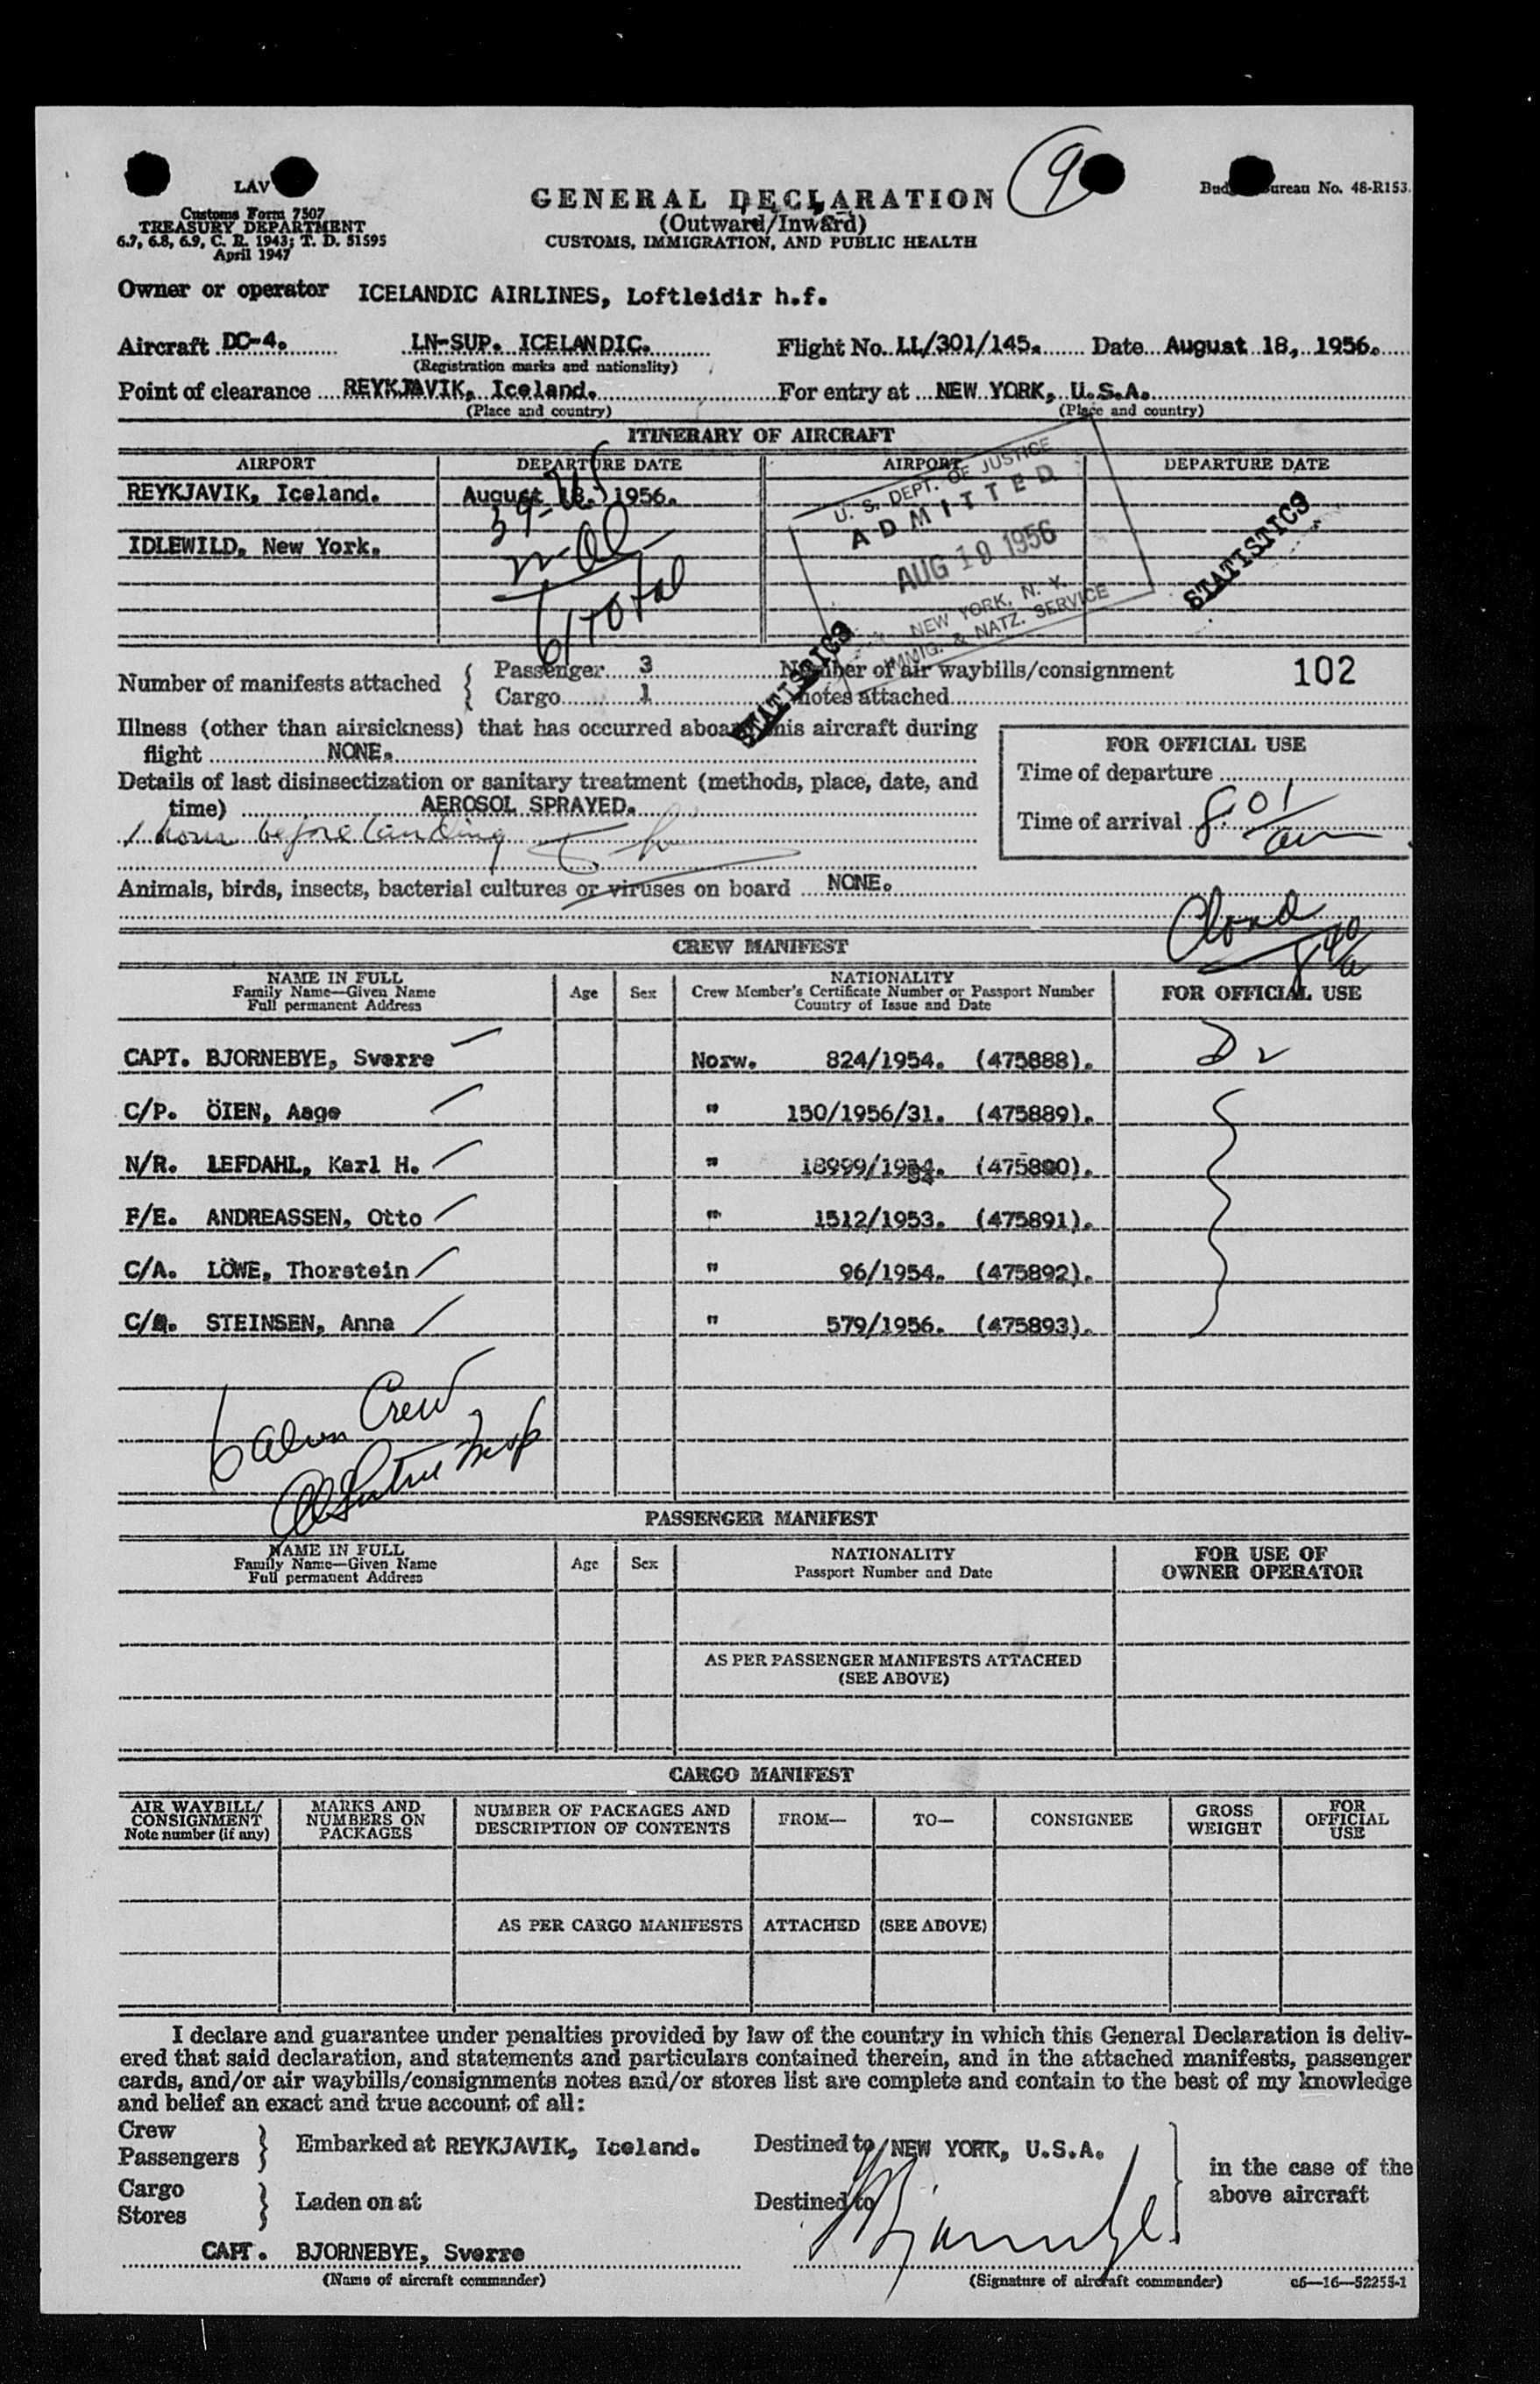 9
LAV
Customs Form 7507
TREASURY DEPARTMENT
6.7, 6.8, 6.9, C. R. 1943; T. D. 51595
April 1947
GENERAL DECLARATION
(Outward/Inward)
CUSTOMS, IMMIGRATION, AND PUBLIC HEALTH
Bud ureau No. 48-R153.
Owner or operator ICELANDIC AIRLINES, Loftleidir h.f.
Aircraft DC-4. LN-SUP. ICELANDIC. Flight No. LL/301/145. Date August 18, 1956.
(Registration marks and nationality)
Point of clearance REYKJAVIK, Iceland. For entry at NEW YORK, U.S.A.
(Place and country) (Place and country)
ITINERARY OF AIRCRAFT
AIRPORT DEPARTURE DATE AIRPORT DEPARTURE DATE
REYKJAVIK, Iceland. August 18. 1956.
IDLEWILD, New York.
61 total
U. S. DEPT. OF JUSTICE
ADMITTED
AUG 19 1956
NEW YORK, N. Y.
IMMIG. & NATZ. SERVICE
STATISTICS
STATISTICS
Number of manifests attached { Passenger 3 Number of air waybills/consignment 102
Cargo 1 notes attached
Illness (other than airsickness) that has occurred aboard this aircraft during
flight NONE.
Details of last disinsectization or sanitary treatment (methods, place, date, and
time) AEROSOL SPRAYED.
1 hour before landing
FOR OFFICIAL USE
Time of departure
Time of arrival 8:01 am
Animals, birds, insects, bacterial cultures or viruses on board NONE.
CREW MANIFEST
NAME IN FULL
Family Name—Given Name
Full permanent Address
Age Sex
NATIONALITY
Crew Member's Certificate Number or Passport Number
Country of Issue and Date
FOR OFFICIAL USE
CAPT. BJORNEBYE, Sverre Norw. 824/1954. (475888).
C/P. ÖIEN, Aage " 150/1956/31. (475889).
N/R. LEFDAHL, Karl H. " 18999/1954. (475890).
F/E. ANDREASSEN, Otto " 1512/1953. (475891).
C/A. LÖWE, Thorstein " 96/1954. (475892).
C/A. STEINSEN, Anna " 579/1956. (475893).
6 alien Crew
PASSENGER MANIFEST
NAME IN FULL
Family Name—Given Name
Full permanent Address
Age Sex
NATIONALITY
Passport Number and Date
FOR USE OF
OWNER OPERATOR
AS PER PASSENGER MANIFESTS ATTACHED
(SEE ABOVE)
CARGO MANIFEST
AIR WAYBILL/
CONSIGNMENT
Note number (if any)
MARKS AND
NUMBERS ON
PACKAGES
NUMBER OF PACKAGES AND
DESCRIPTION OF CONTENTS
FROM— TO— CONSIGNEE
GROSS
WEIGHT
FOR
OFFICIAL
USE
AS PER CARGO MANIFESTS ATTACHED (SEE ABOVE)
I declare and guarantee under penalties provided by law of the country in which this General Declaration is deliv-
ered that said declaration, and statements and particulars contained therein, and in the attached manifests, passenger
cards, and/or air waybills/consignments notes and/or stores list are complete and contain to the best of my knowledge
and belief an exact and true account of all:
Crew
Passengers } Embarked at REYKJAVIK, Iceland. Destined to NEW YORK, U.S.A.
Cargo
Stores } Laden on at Destined to
in the case of the
above aircraft
CAPT. BJORNEBYE, Sverre
(Name of aircraft commander) (Signature of aircraft commander) c6—16—52255-1